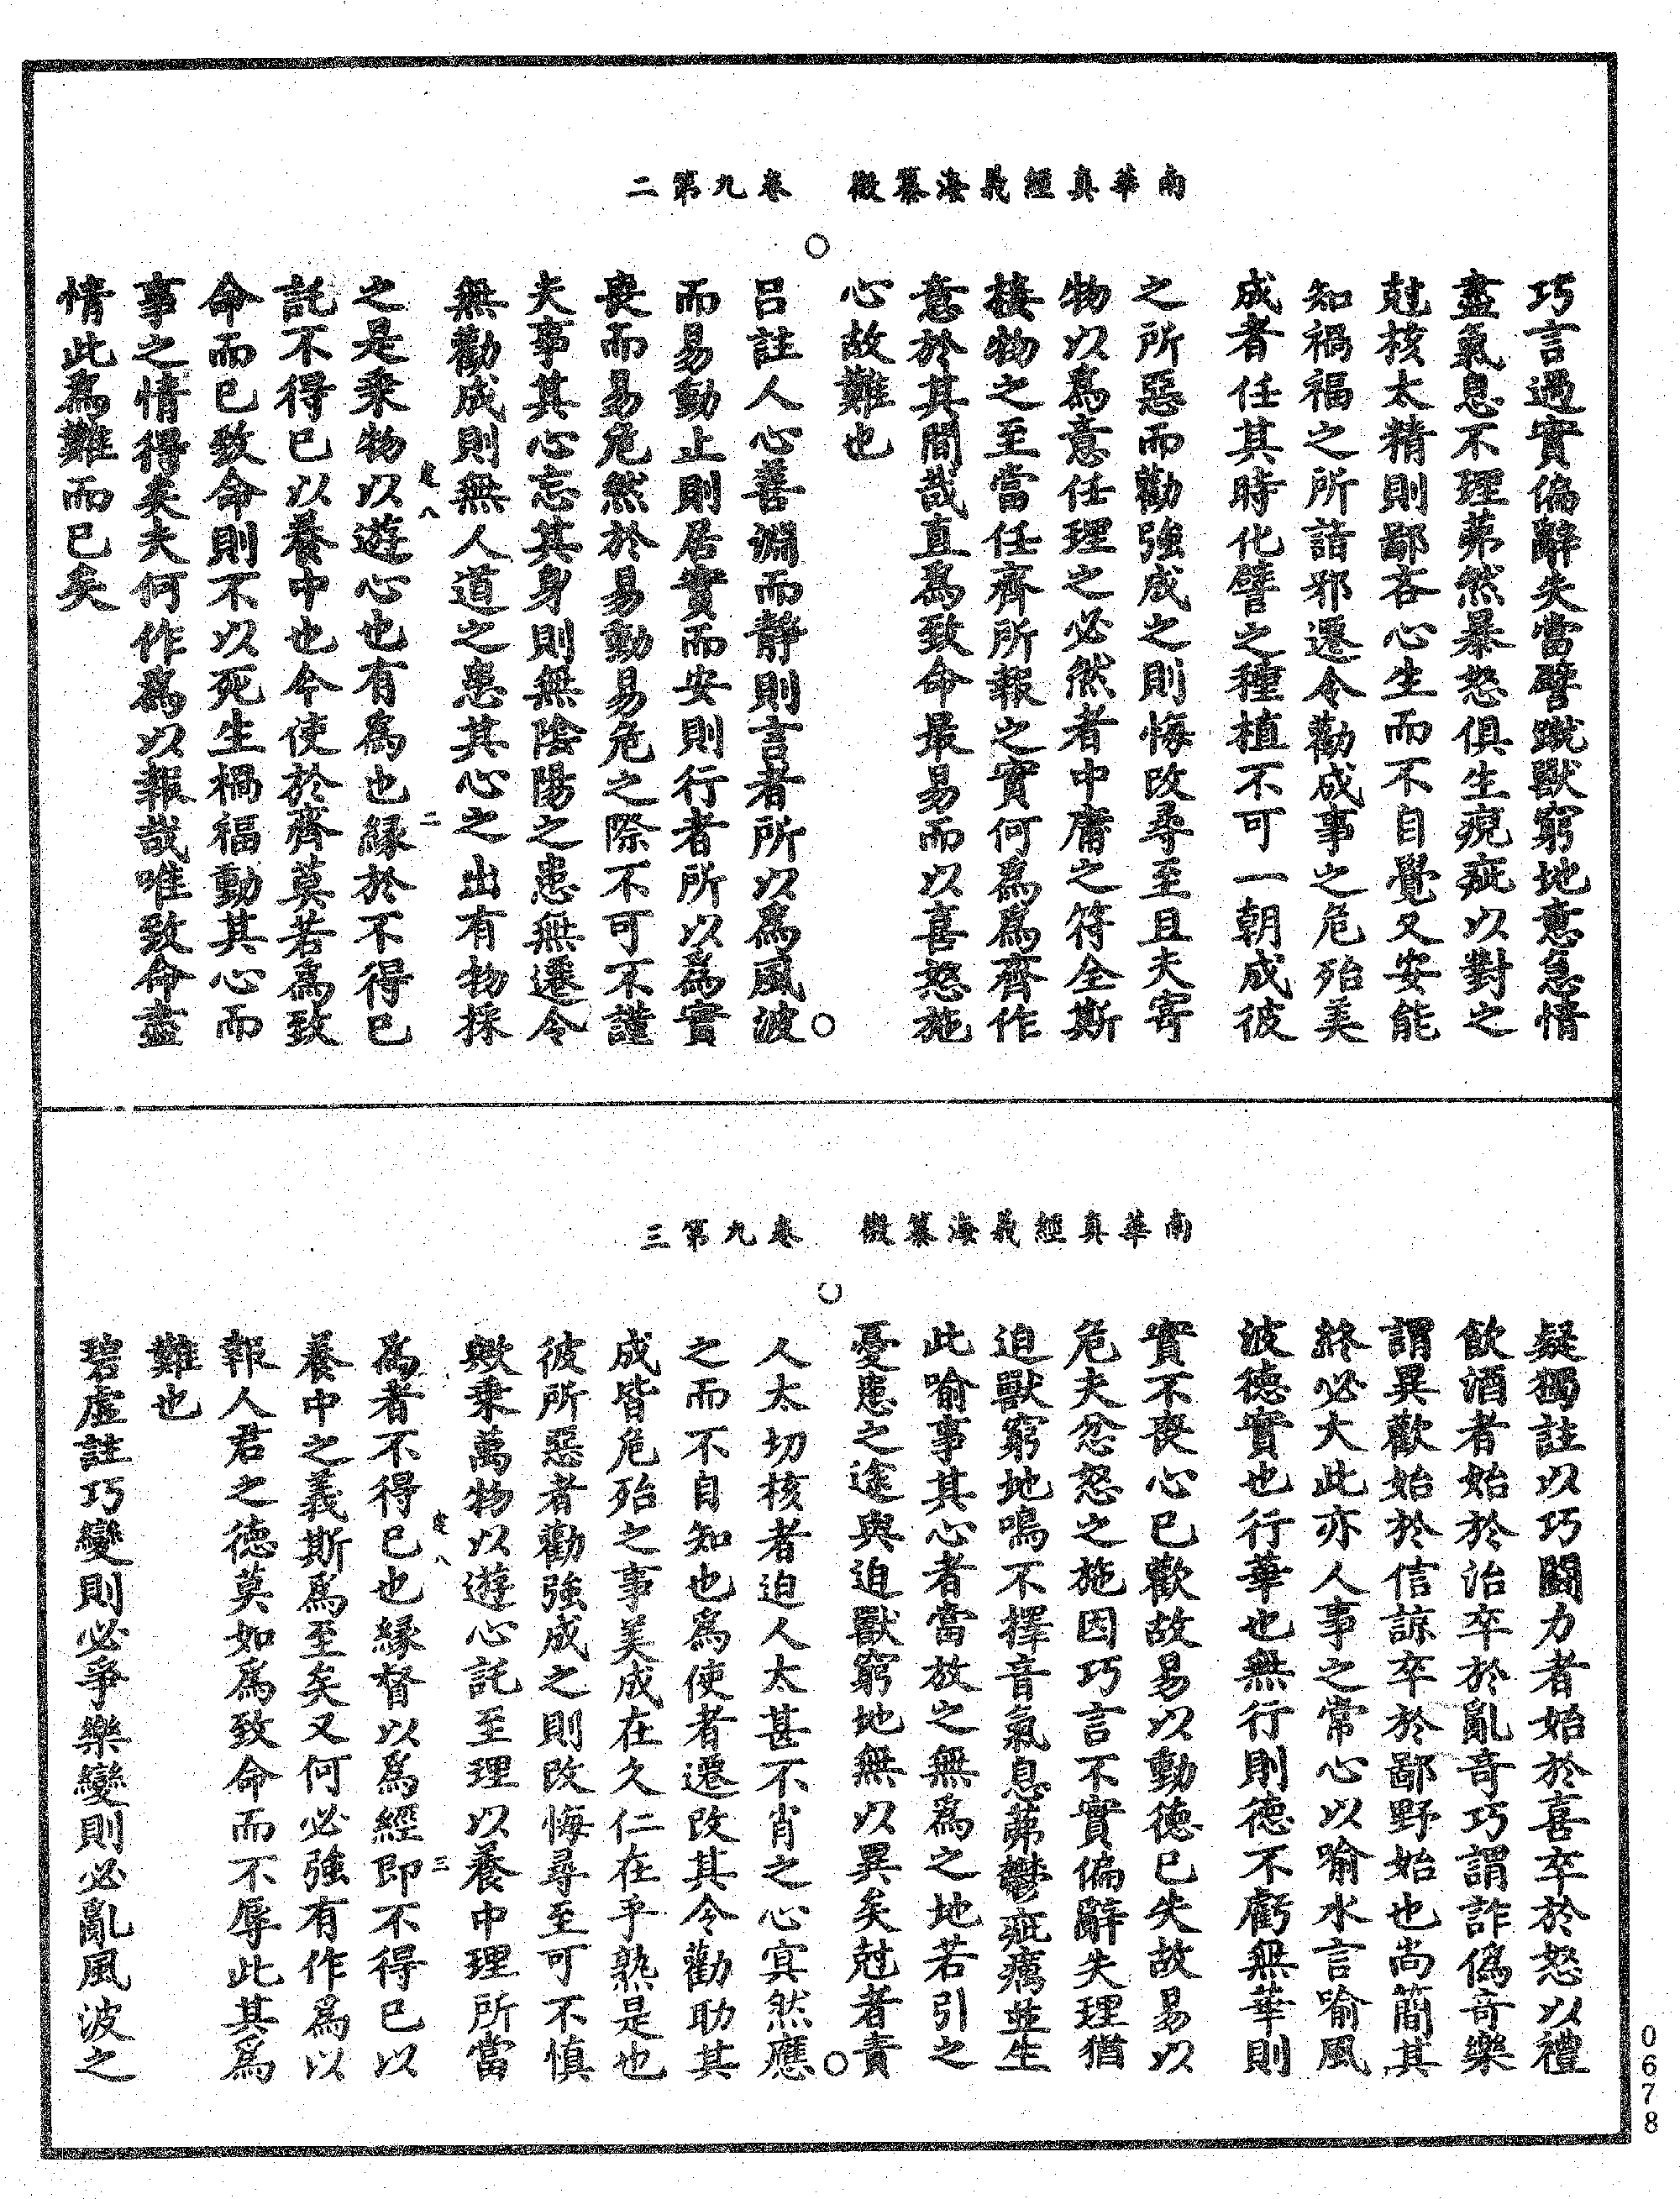 南華真經義海纂微　卷九第二
巧言過實偏辭失當譬蹴獸窮地意急情
盡氣息不理茀然暴怒俱生疵以對之
尅核太精則鄙吝心生而不自覺又安能
知禍福之所詣邪遷令勸成事之危殆美
成者任其時化譬之種植不可一朝成彼
之所惡而勸強成之則悔改尋至且夫寄
物以為意任理之必然者中庸之符全斯
接物之至當任齊所報之實何為為齊作
意於其間哉直為致命最易而以喜怒施
心故難也
呂註人心善淵而靜則言者所以為風波
而易動止則居實而安則行者所以為實
喪而易危然於易動易危之際不可不謹
夫事其心忘其身則無陰陽之患無遷令
無勸成則無人道之患其心之出有物採
之是乗物以遊心也有為也縁於不得已
定八　二
託不得已以養中也今使於齊莫若為致
命而已致命則不以死生禍福動其心而
事之情得矣夫何作為以報哉唯致命盡
情此為難而已矣
南華真經義海纂微　卷九第三
疑獨註以巧鬭力者始於喜卒於怒以禮
飲酒者始於治卒於亂奇巧謂詐偽奇樂
謂異歡始於信諒卒於鄙野始也尚簡其
終必大此亦人事之常心以喻水言喻風
波德實也行華也無行則德不虧無華則
實不喪心已歡故易以動德已失故易以
危夫忿怒之施因巧言不實偏辭失理猶
迫獸窮地鳴不擇音氣息茀鬱疵癘並生
此喻事其心者當放之無為之地若引之
憂患之途與迫獸窮地無以異矣尅者責
人太切核者迫人太甚不肖之心冥然應
之而不自知也為使者遷改其令勸助其
成皆危殆之事美成在久仁在乎熟是也
彼所惡者勸強成之則改悔尋至可不慎
歟乗萬物以遊心託至理以養中理所當
定八　三
為者不得已也縁督以為經即不得已以
養中之義斯為至矣又何必強有作為以
報人君之德莫如為致命而不辱此其為
難也
碧虛註巧變則必爭樂變則必亂風波之
0678